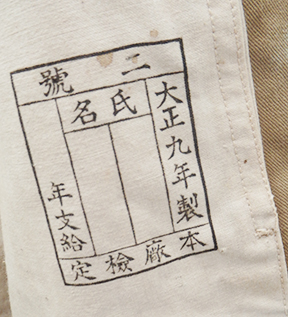 二號
大正九年製
氏名
年支給
本廠檢定